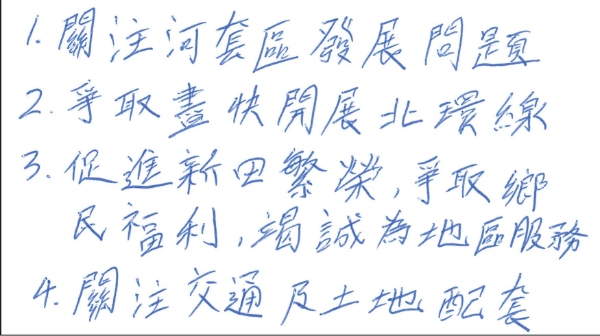 1. 關注河套區發展問題
2. 爭取盡快開展北環線
3. 促進新田繁榮，爭取鄉
民福利，竭誠為地區服務
4. 關注交通及土地配套